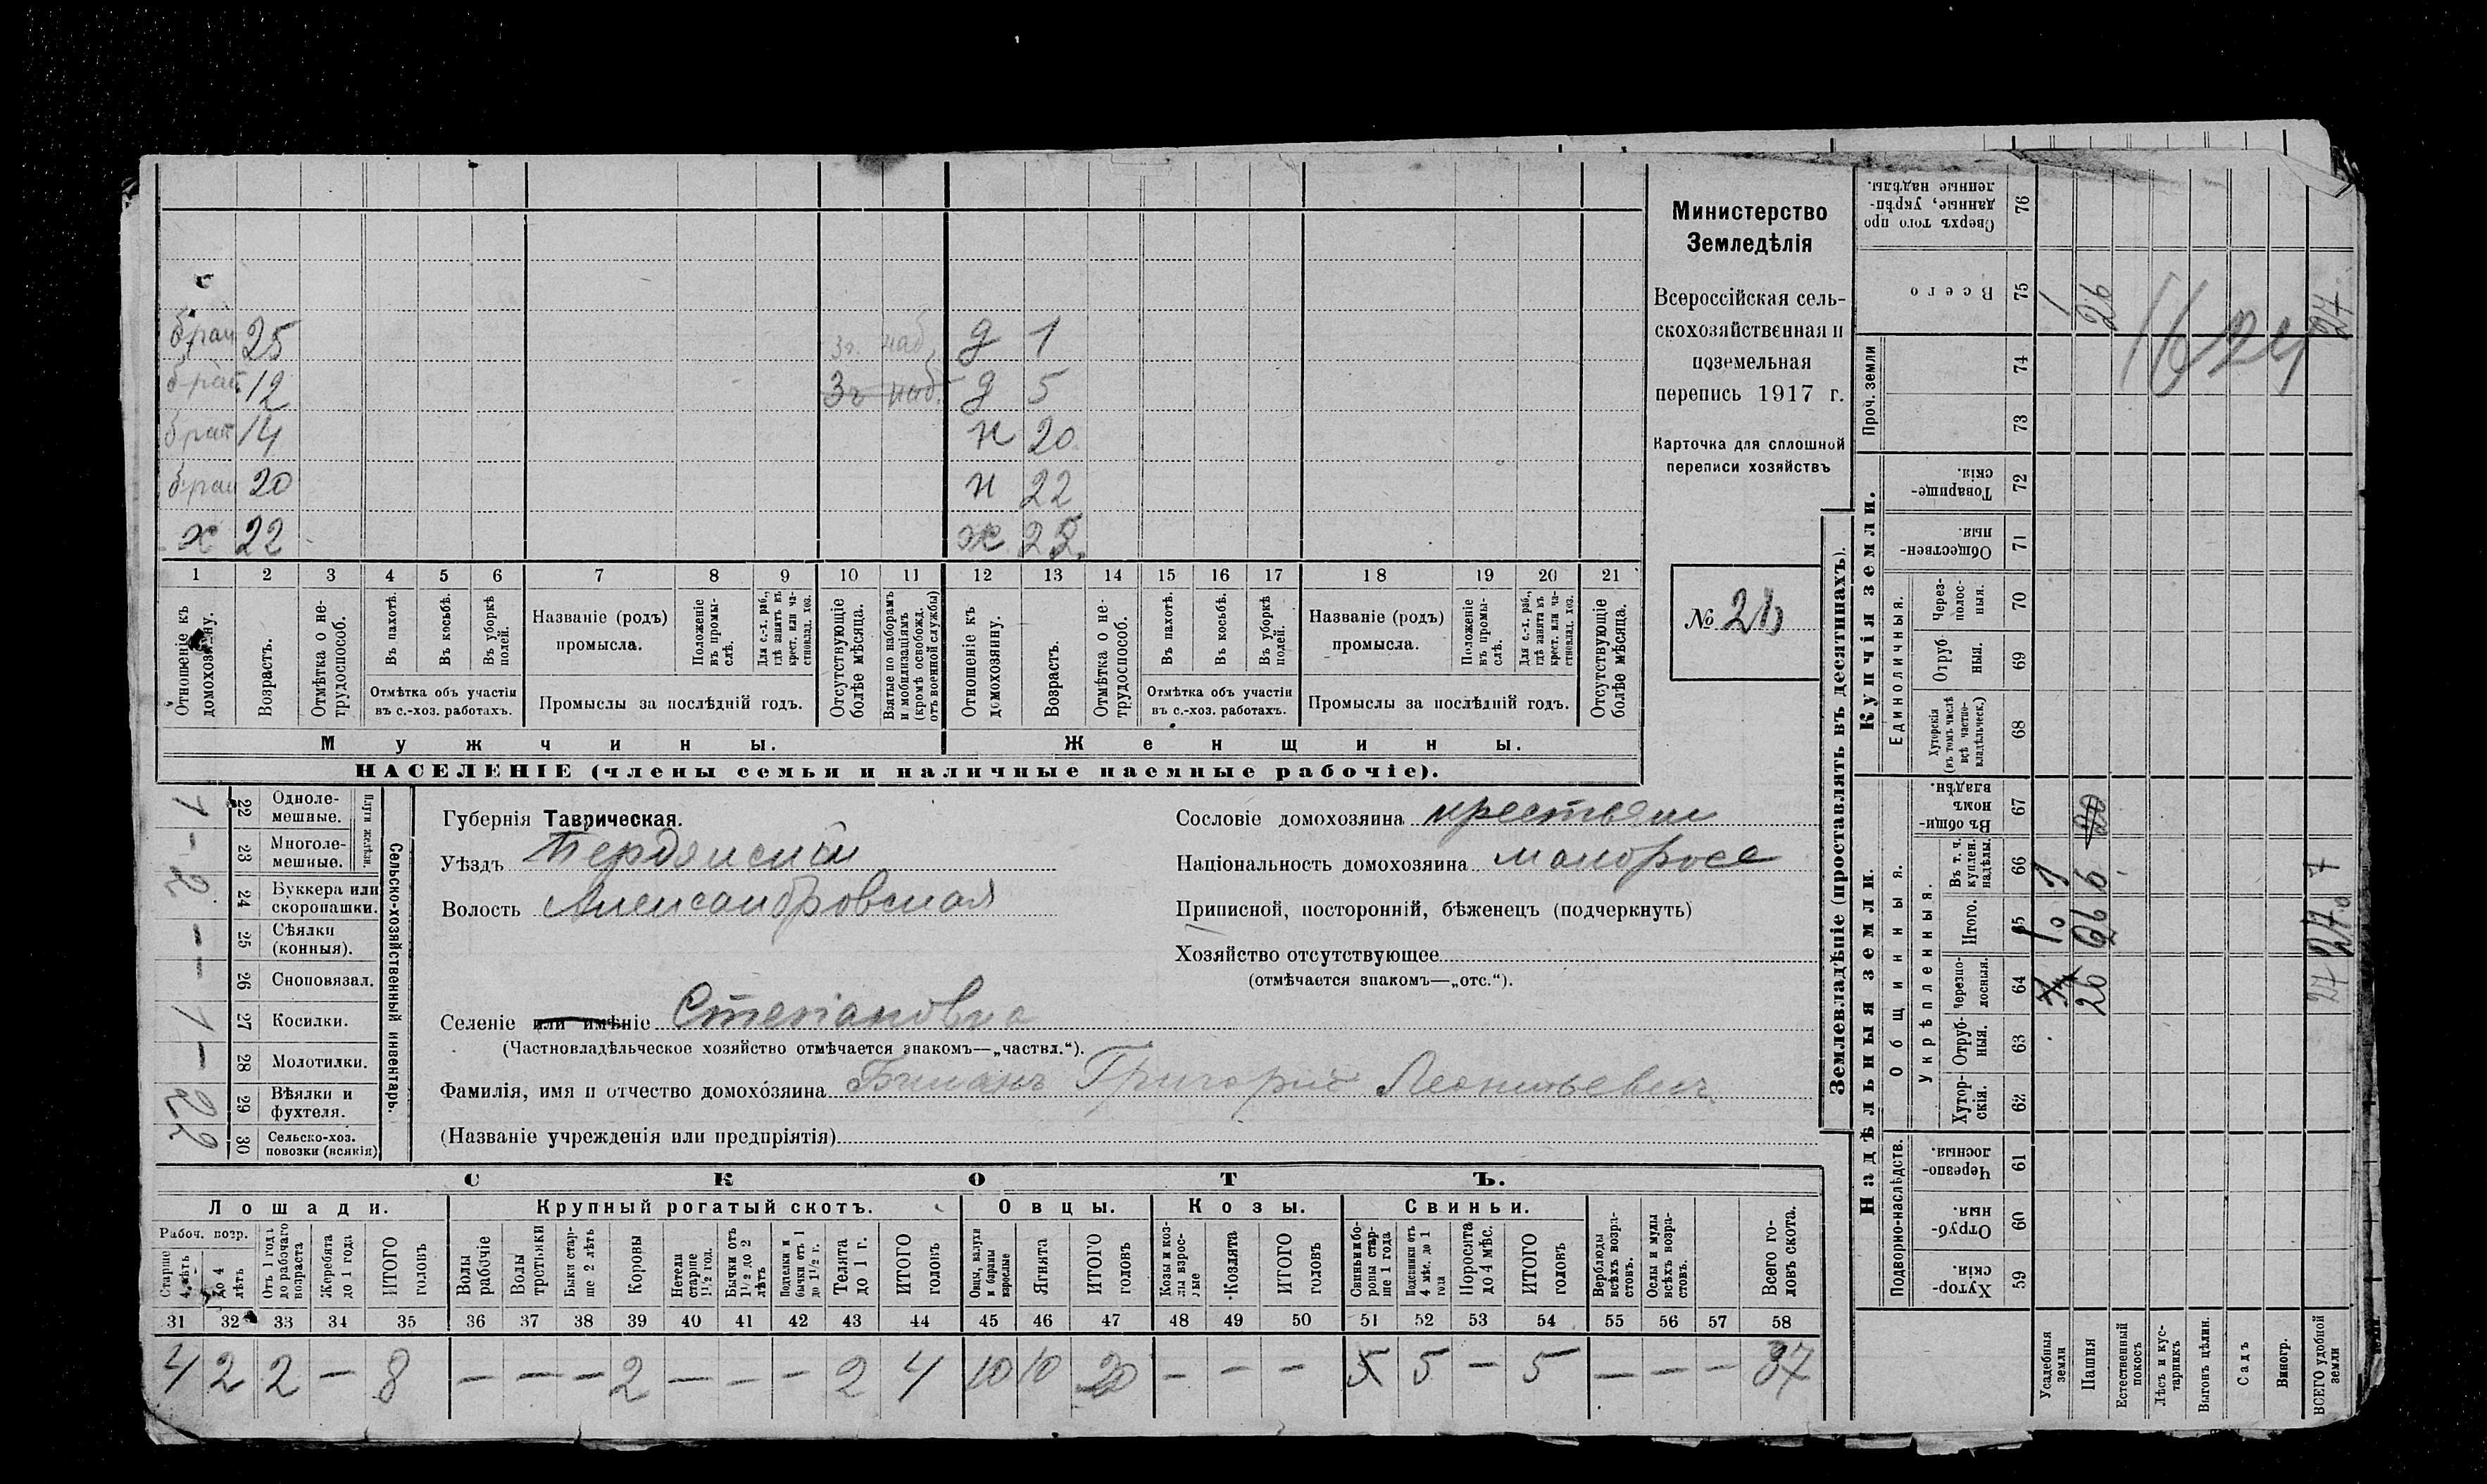 брат 25 Зг. наб. д 1
брат 12 Зъ наб. д 5
брат 14 н 20
брат 20 н 22
х 22 ж 22
1 2 3 4 5 6 7 8 9 10 11 12 13 14 15 16 17 18 19 20 21
Отношеніе къ домохозяину.
Возрастъ.
Отмѣтка о нетрудоспособ.
Въ пахотѣ.
Въ косьбѣ.
Въ уборкѣ полей.
Отмѣтка объ участіи
въ с.-хоз. работахъ.
Названіе (родъ)
промысла.
Положеніе въ промыслѣ.
Для с.-х. раб., гдѣ занятъ въ крест. или частновлад. хоз.
Промыслы за послѣдній годъ.
Отсутствующіе болѣе мѣсяца.
Взятые по наборамъ и мобилизаціямъ (кромѣ освобожд. отъ военной службы)
Отношеніе къ домохозяину.
Возрастъ.
Отмѣтка о нетрудоспособ.
Въ пахотѣ.
Въ косьбѣ.
Въ уборкѣ полей.
Отмѣтка объ участіи
въ с.-хоз. работахъ.
Названіе (родъ)
промысла.
Положеніе въ промыслѣ.
Для с.-х. раб., гдѣ занята въ крест. или частновлад. хоз.
Промыслы за послѣдній годъ.
Отсутствующіе болѣе мѣсяца.
Мужчины. Женщины.
НАСЕЛЕНІЕ (члены семьи и наличные наемные рабочіе).
Министерство
Земледѣлія
Всероссійская сель-
скохозяйственная и
поземельная
перепись 1917 г.
Карточка для сплошной
переписи хозяйствъ
№
Сельско-хозяйственный инвентарь.
1 22 Одноле-
мешные.
- 23 Многоле-
мешные.
2 24 Буккера или
скоропашки.
- 25 Сѣялки
(конныя).
- 26 Сноповязал.
1 27 Косилки.
- 28 Молотилки.
2 29 Вѣялки и
фухтеля.
2 30 Сельско-хоз.
повозки (всякія)
Губернія Таврическая.
Уѣздъ Бердянскій
Волость Александровская
Селеніе или имѣніе Степановка
(Частновладѣльческое хозяйство отмѣчается знакомъ—„частвл.“).
Фамилія, имя и отчество домохозяина Григорій Леонтьевич
(Названіе учрежденія или предпріятія)
Сословіе домохозяина крестьян
Національность домохозяина малоросс
Приписной, посторонній, бѣженецъ (подчеркнуть)
Хозяйство отсутствующее
(отмѣчается знакомъ—„отс.“).
СКОТЪ.
Лошади. Крупный рогатый скотъ. Овцы. Козы. Свиньи.
Рабоч. возр.
Старше 4 лѣтъ
до 4 лѣтъ
Отъ 1 года до рабочаго возраста
Жеребята до 1 года
ИТОГО головъ
Волы рабочіе
Волы третьяки
Быки старше 2 лѣтъ
Коровы
Нетели старше 1½ год.
Бычки отъ 1½ до 2 лѣтъ
Телята до 1 г.
ИТОГО головъ
Овцы, валухи и бараны взрослые
Ягнята
ИТОГО головъ
Козы и козлы взрослые
Козлята
ИТОГО головъ
Свиньи и боровы старше 1 года
Подсвинки отъ 4 мѣс. до 1 года
Поросята до 4 мѣс.
ИТОГО головъ
Верблюды всѣхъ возрастовъ.
Ослы и мулы всѣхъ возрастовъ.
Всего головъ скота.
31 32 33 34 35 36 37 38 39 40 41 42 43 44 45 46 47 48 49 50 51 52 53 54 55 56 57 58
4 2 2 — 8 — — — 2 — — — 2 4 10 10 20 — — — 5 5 — 5 — — — 37
Землевладѣніе (проставлять въ десятинахъ).
Надѣльныя земли. Купчія земли. Проч. земли
Подворно-наслѣдств. Общинныя. Укрѣпленныя. Единоличныя.
Хуторскія. 59
Отрубныя. 60
Черезполосныя. 61
Хуторскія. 62
Отрубныя. 63
Черезполосныя. 64
Итого. 65
Въ т. ч. куплен. надѣлы. 66
Въ общинномъ владѣн. 67
Хуторскія (въ томъ числѣ всѣ частновладѣльческ.) 68
Отрубныя. 69
Черезполосныя. 70
Общественныя 71
Товарищескія. 72
73
74
Всего 75
Сверхъ того проданные, укрѣпленные надѣлы. 76
Усадебныя земли 1
Пашня 26 26 6 26
Естественный покосъ
Лѣсъ и кустарникъ
Выгонъ цѣлин.
Садъ
Виногр.
ВСЕГО удобной земли 27 27 7 27